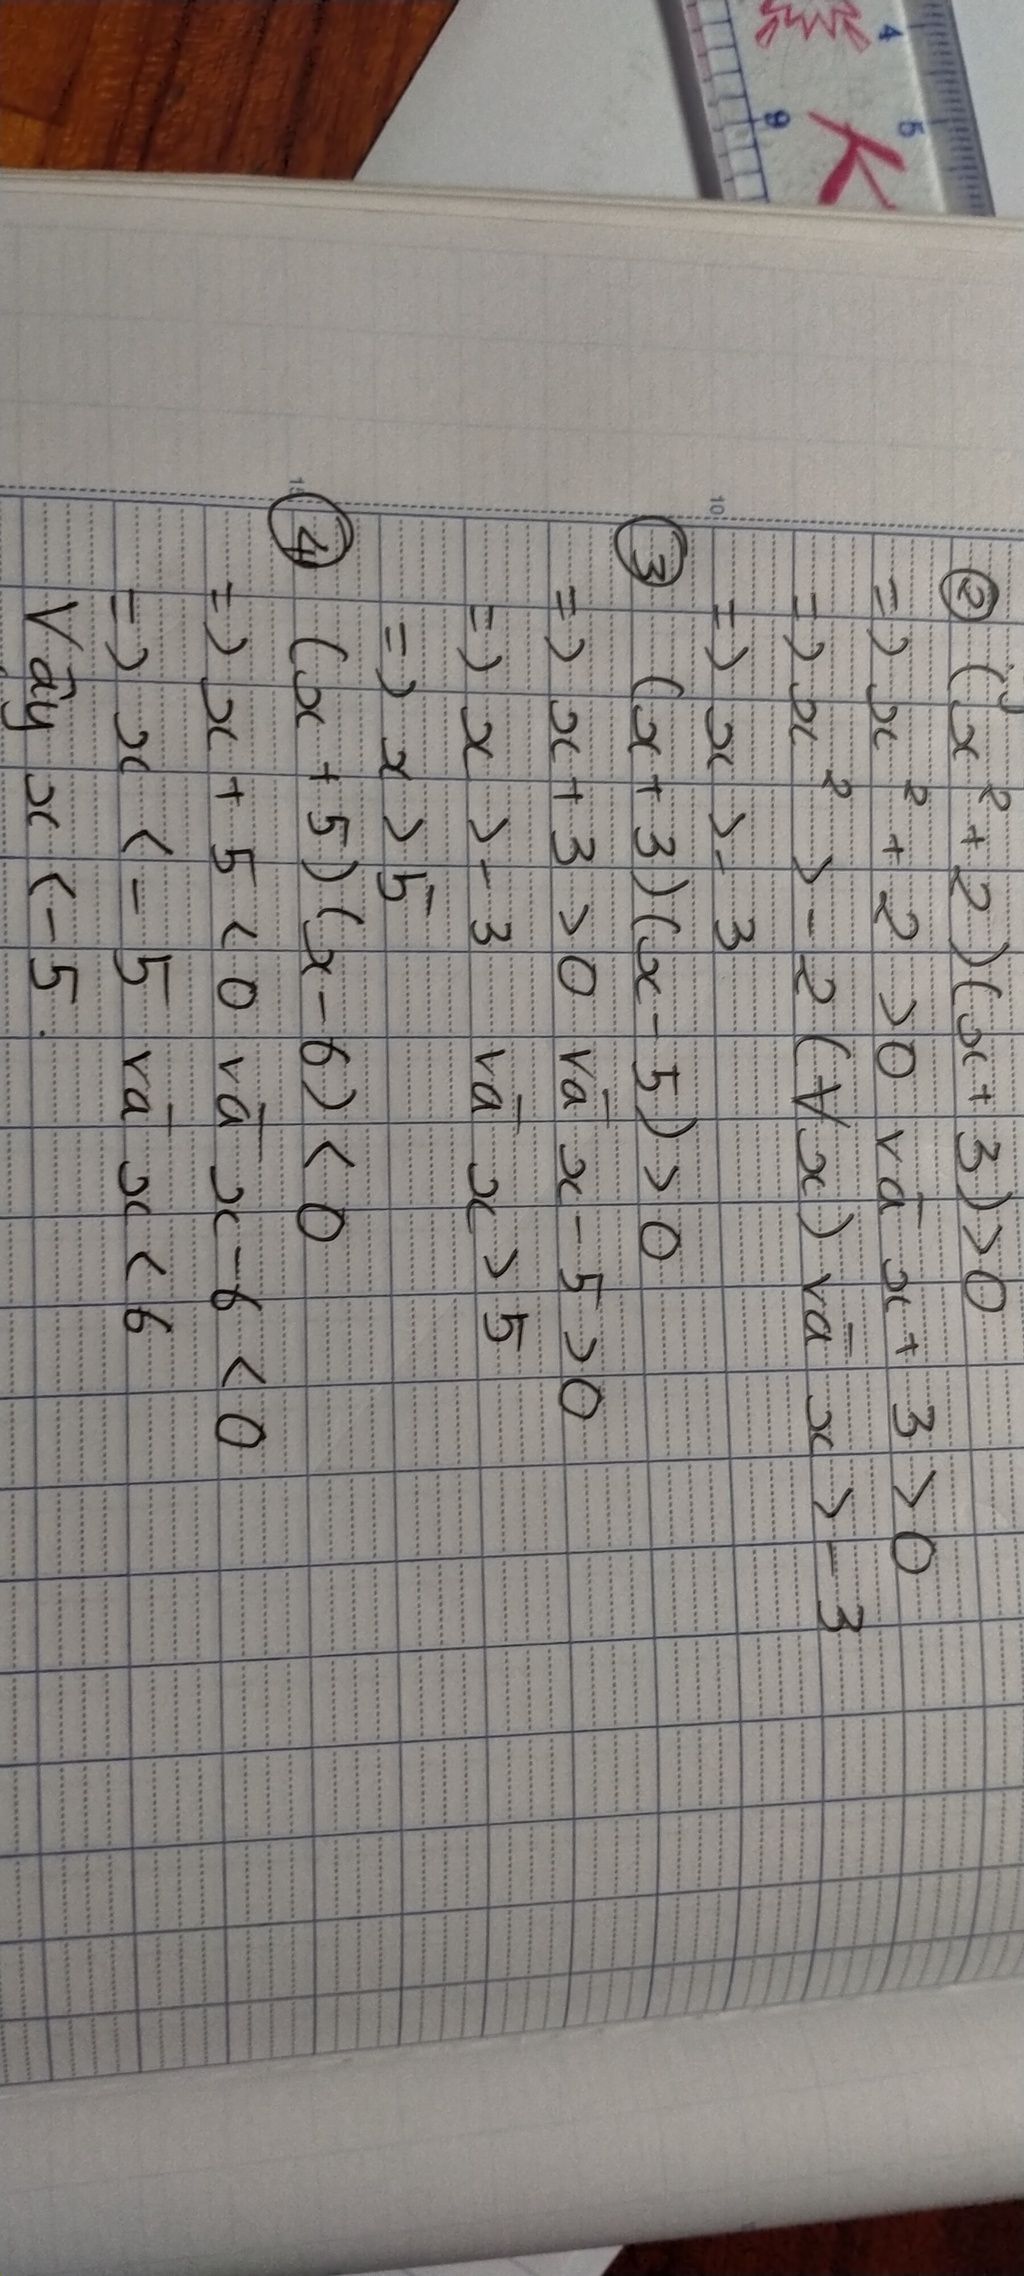 4 5
9
K
② (x² + 2)(x + 3) > 0
=> x² + 2 > 0 và x + 3 > 0
=> x² > -2 (∀x) và x > -3
10
=> x > -3
③ (x + 3)(x - 5) > 0
=> x + 3 > 0 và x - 5 > 0
=> x > -3 và x > 5
=> x > 5
15
④ (x + 5)(x - 6) < 0
=> x + 5 < 0 và x - 6 < 0
=> x < -5 và x < 6
Vậy x < -5.